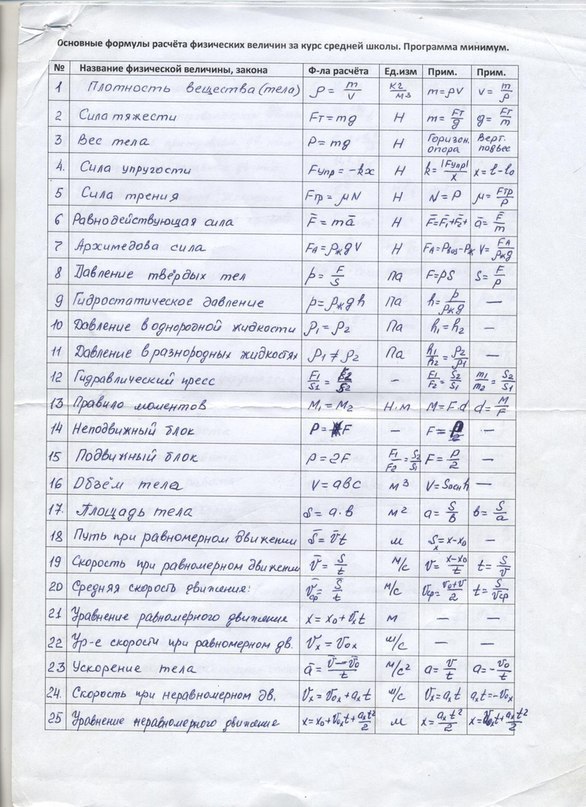 Основные формулы расчёта физических величин за курс средней школы. Программа минимум.
№ Название физической величины, закона Ф-ла расчёта Ед.изм Прим. Прим.
1 Плотность вещества (тела) ρ = m/V кг/м³ m=ρV v=m/ρ
2 Сила тяжести Fт = mg Н m=Fт/g g=Fт/m
3 Вес тела P = mg Н Горизон. опора Верт. подвес
4. Сила упругости Fупр = -kx Н k=|Fупр|/x x=l-l₀
5 Сила трения Fтр = μN Н N=P μ=Fтр/P
6 Равнодействующая сила F̄ = mā Н F̄=F̄₁+F̄₂+ ā=F̄/m
7 Архимедова сила FА = ρжgV Н FА=Pвоз-Pж V=FА/ρжg
8 Давление твёрдых тел p = F/S Па F=pS S=F/p
9 Гидростатическое давление p=ρжgh Па h=p/ρжg —
10 Давление в однородной жидкости p₁ = p₂ Па h₁=h₂ —
11 Давление в разнородных жидкостях p₁ ≠ p₂ Па h₁/h₂=ρ₂/ρ₁ —
12 Гидравлический пресс F₁/S₁ = F₂/S₂ – F₁/F₂=S₂/S₁ m₁/m₂=S₂/S₁
13 Правило моментов M₁ = M₂ Н·м M=F·d d=M/F
14 Неподвижный блок P = F – F= —
15 Подвижный блок P = 2F F₁/F₂=S₂/S₁ F=P/2 —
16 Объём тела V = abc м³ V=Sоснh —
17. Площадь тела S = a·b м² a=S/b b=S/a
18 Путь при равномерном движении s̄ = v̄t м Sₓ=x-x₀ —
19 Скорость при равномерном движении v̄ = s̄/t м/с v=x-x₀/t t=S/v
20 Средняя скорость движения: v̄ср = s̄/t м/с vср=v₀+v/2 t=S/vср
21 Уравнение равномерного движения x = x₀+vₓt м — —
22 Ур-е скорости при равномерном дв. vₓ = v₀ₓ м/с — —
23 Ускорение тела ā = v̄-v̄₀/t м/с² a=v/t a=-v₀/t
24. Скорость при неравномерном дв. vₓ = v₀ₓ+aₓt м/с vₓ=aₓt aₓt=-v₀ₓ
25 Уравнение неравномерного движения x = x₀+v₀ₓt+aₓt²/2 м x=aₓt²/2 x=v₀ₓt+aₓt²/2